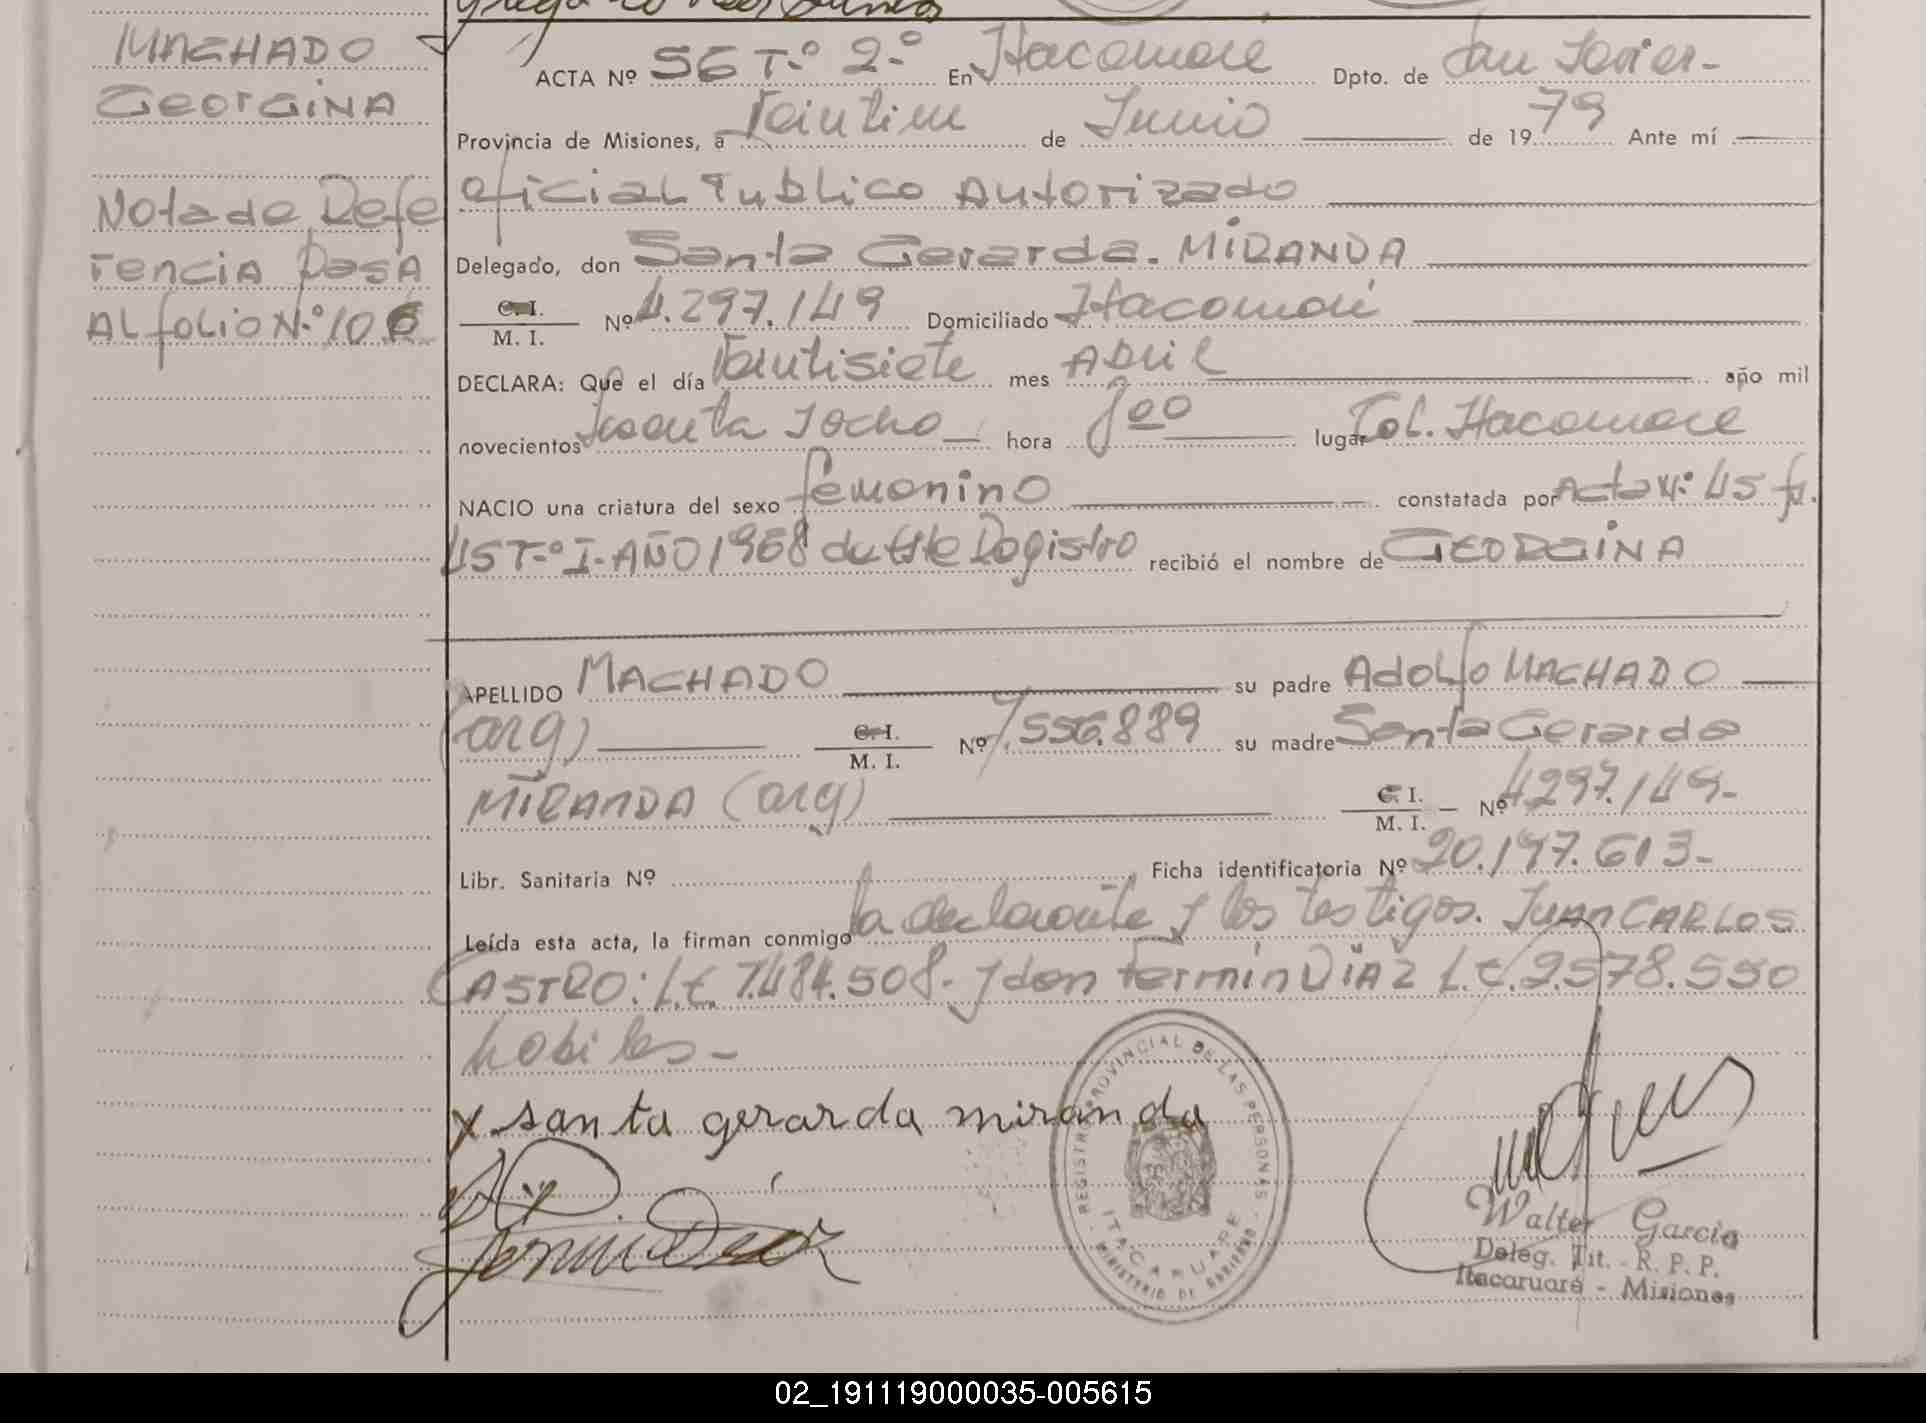 MACHADO
GEORGINA
Nota de Refe
rencia Pasa
Al folio N.º 106
ACTA Nº 56 T.º 2.º En Itacaruaré Dpto. de San Javier-
Provincia de Misiones, a de Junio de 1979 Ante mí
oficial Publico Autorizado
Delegado, don Santa Gerarda. MIRANDA
C. I.
M. I. Nº 4.297.149 Domiciliado Itacaruaré
DECLARA: Que el día Veintisiete mes Abril año mil
novecientos Sesenta y ocho hora 8 00 lugar Col. Itacaruaré
NACIO una criatura del sexo femenino constatada por Acta N.º 45 fº.
45 T.º I. AÑO 1968 de este Registro recibió el nombre de GEORGINA
APELLIDO MACHADO su padre Adolfo MACHADO
(arg) C. I.
M. I. Nº 7.556.889 su madre Santa Gerarda
MIRANDA (arg) C. I.
M. I. Nº 4.297.149-
Libr. Sanitaria Nº Ficha identificatoria Nº 20.197.613-
Leída esta acta, la firman conmigo la declarante y los testigos. JUAN CARLOS
CASTRO: L.E. 7.484.508. y don Fermín DIAZ L.E. 2.578.550
habiles-
x santa gerarda miranda
REGISTRO PROVINCIAL DE LAS PERSONAS
ITACARUARE
MINISTERIO DE GOBIERNO
Walter Garcia
Deleg. Tit. - R. P. P.
Itacaruaré - Misiones
02_191119000035-005615